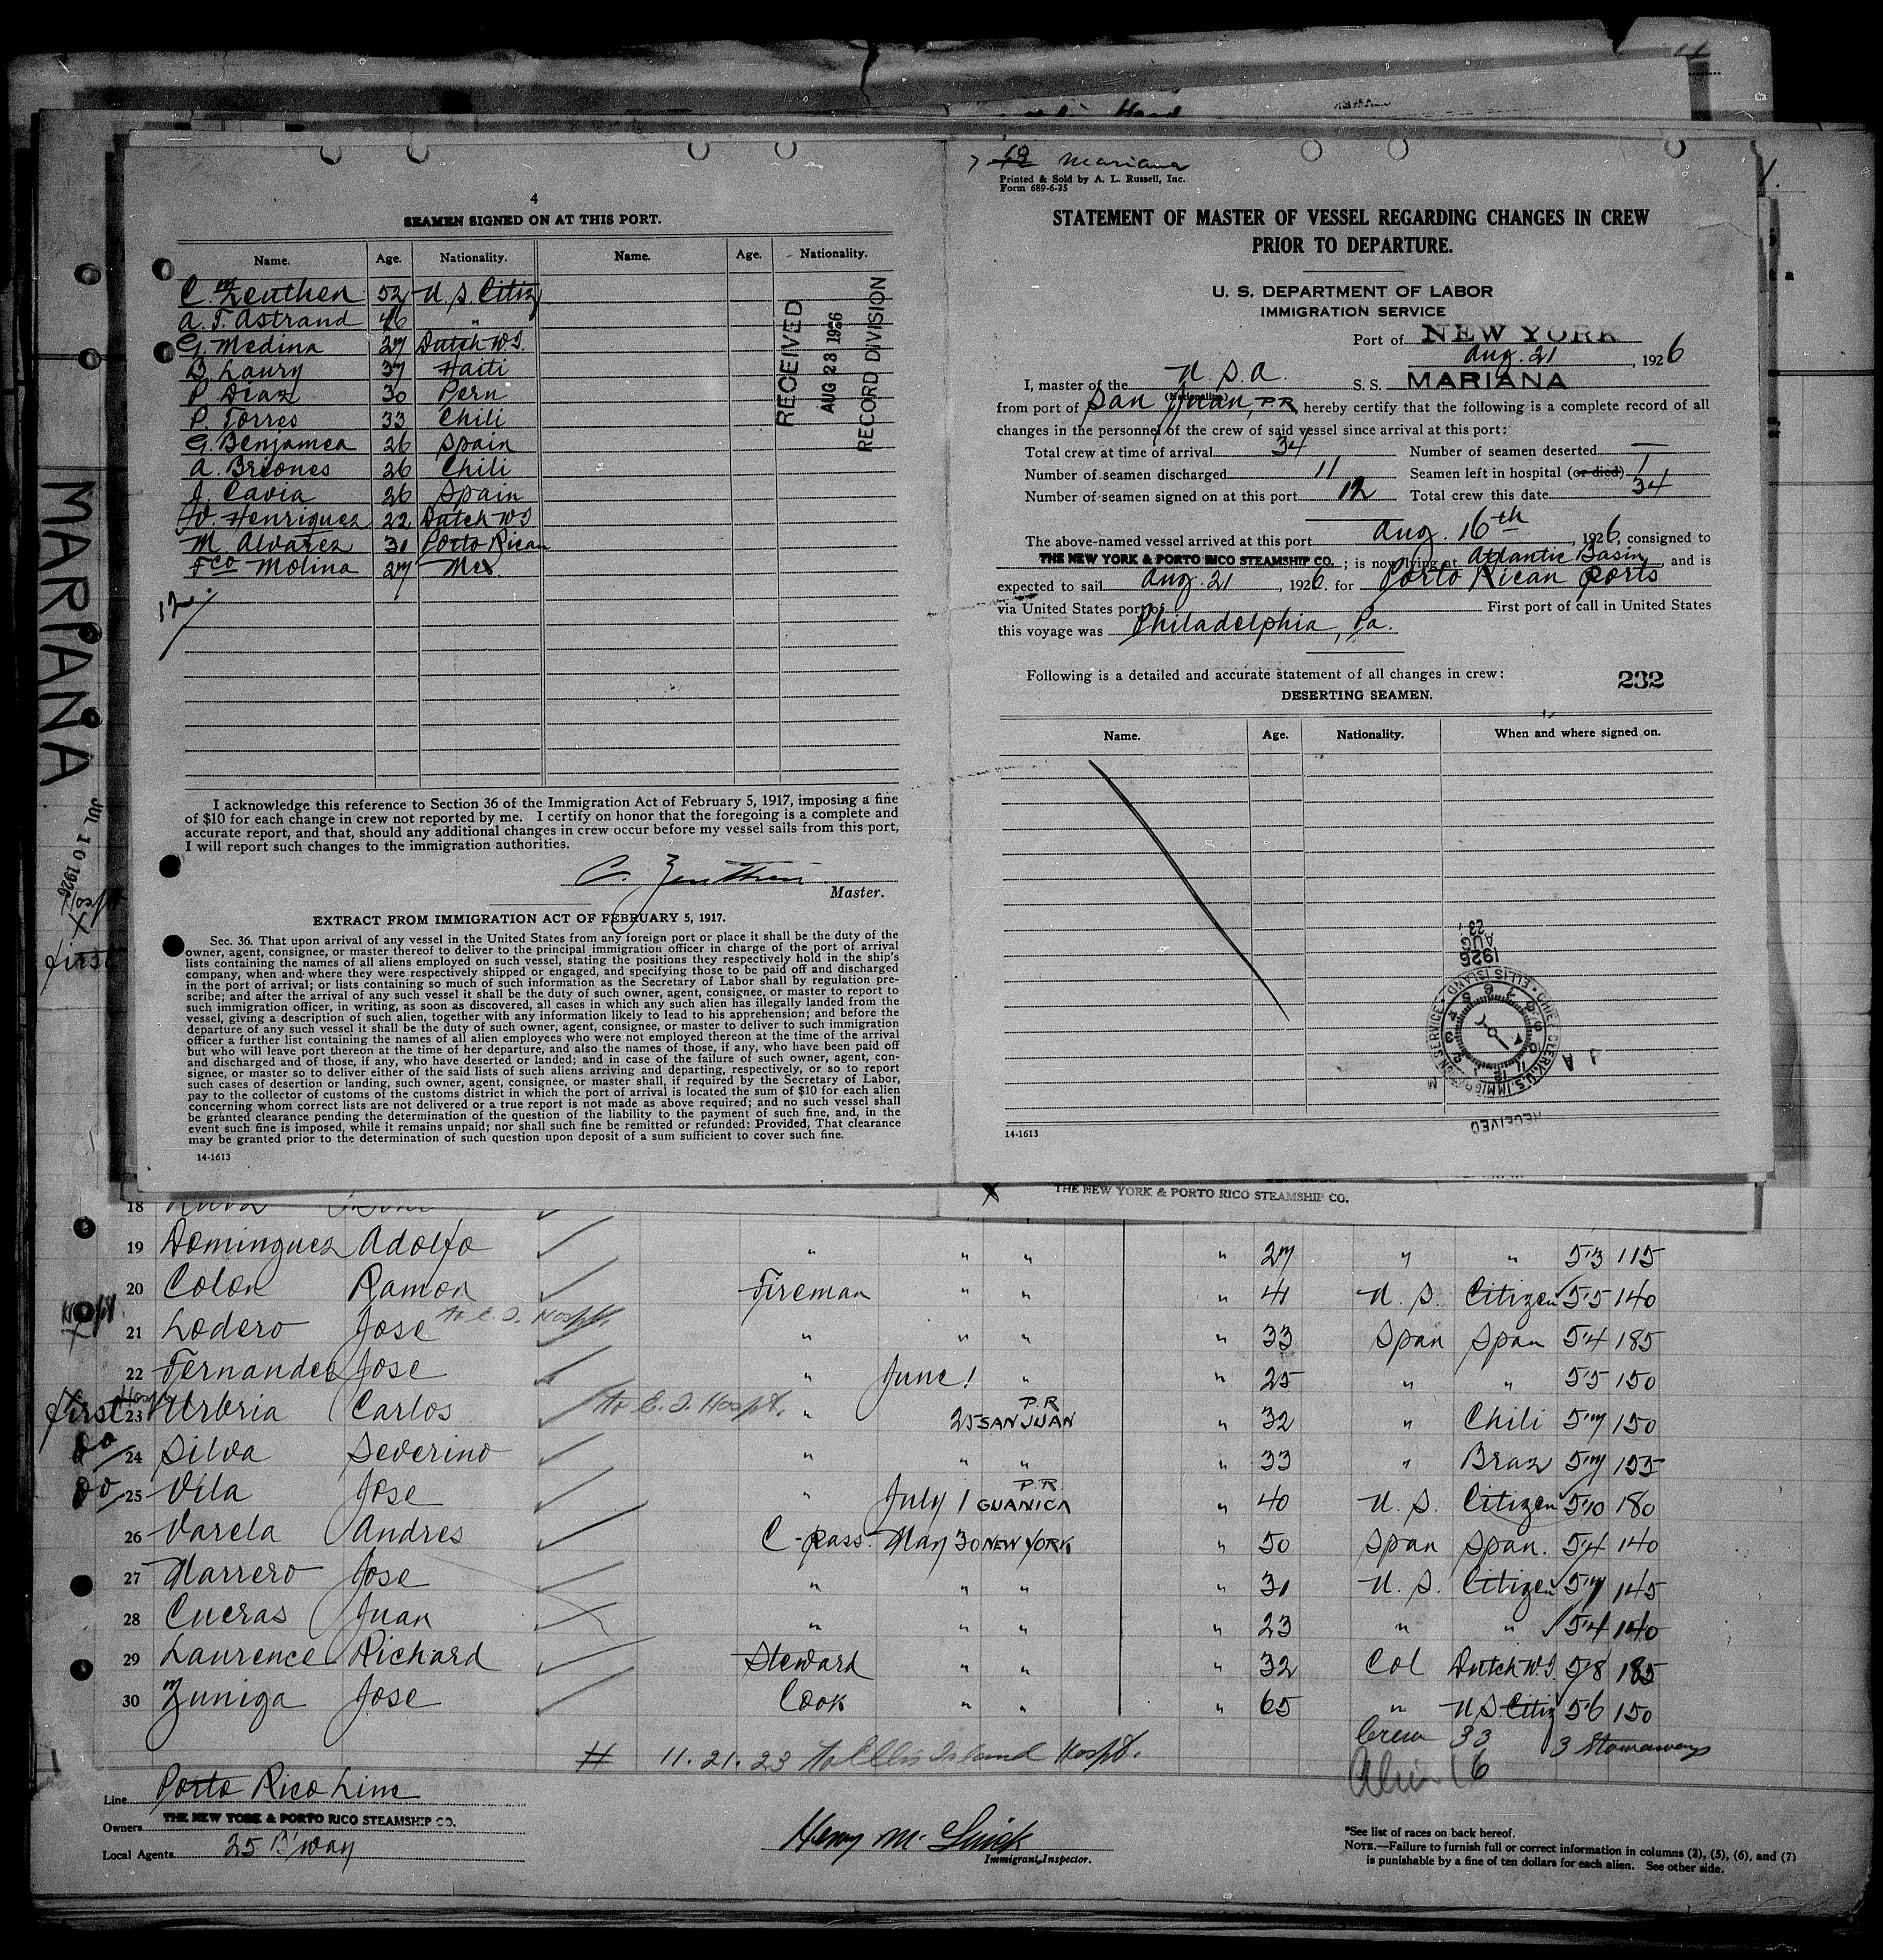 4
SEAMEN SIGNED ON AT THIS PORT.
Name. Age. Nationality. Name. Age. Nationality.
C. Zeuthen 52 U. S. Citiz
A. T. Astrand 46 "
G. Medina 27 Dutch W I.
D. Laury 37 Haiti
P. Diaz 30 Peru
P. Torres 33 Chili
G. Benjamea 26 Spain
A. Briones 26 Chili
J. Cavia 26 Spain
W. Henriquez 22 Dutch W I
M. Alvarez 31 Porto Rican
Fco Molina 27 Mex.
12
RECEIVED
AUG 28 1926
RECORD DIVISION
I acknowledge this reference to Section 36 of the Immigration Act of February 5, 1917, imposing a fine
of $10 for each change in crew not reported by me. I certify on honor that the foregoing is a complete and
accurate report, and that, should any additional changes in crew occur before my vessel sails from this port,
I will report such changes to the immigration authorities.
C. Zeuthen
Master.
EXTRACT FROM IMMIGRATION ACT OF FEBRUARY 5, 1917.
Sec. 36. That upon arrival of any vessel in the United States from any foreign port or place it shall be the duty of the
owner, agent, consignee, or master thereof to deliver to the principal immigration officer in charge of the port of arrival
lists containing the names of all aliens employed on such vessel, stating the positions they respectively hold in the ship's
company, when and where they were respectively shipped or engaged, and specifying those to be paid off and discharged
in the port of arrival; or lists containing so much of such information as the Secretary of Labor shall by regulation pre-
scribe; and after the arrival of any such vessel it shall be the duty of such owner, agent, consignee, or master to report to
such immigration officer, in writing, as soon as discovered, all cases in which any such alien has illegally landed from the
vessel, giving a description of such alien, together with any information likely to lead to his apprehension; and before the
departure of any such vessel it shall be the duty of such owner, agent, consignee, or master to deliver to such immigration
officer a further list containing the names of all alien employees who were not employed thereon at the time of the arrival
but who will leave port thereon at the time of her departure, and also the names of those, if any, who have been paid off
and discharged and of those, if any, who have deserted or landed; and in case of the failure of such owner, agent, con-
signee, or master so to deliver either of the said lists of such aliens arriving and departing, respectively, or so to report
such cases of desertion or landing, such owner, agent, consignee, or master shall, if required by the Secretary of Labor,
pay to the collector of customs of the customs district in which the port of arrival is located the sum of $10 for each alien
concerning whom correct lists are not delivered or a true report is not made as above required; and no such vessel shall
be granted clearance pending the determination of the question of the liability to the payment of such fine, and, in the
event such fine is imposed, while it remains unpaid; nor shall such fine be remitted or refunded: Provided, That clearance
may be granted prior to the determination of such question upon deposit of a sum sufficient to cover such fine.
14-1613
Mariana
Printed & Sold by A. L. Russell, Inc.
Form 689-6-25
STATEMENT OF MASTER OF VESSEL REGARDING CHANGES IN CREW
PRIOR TO DEPARTURE.
U. S. DEPARTMENT OF LABOR
IMMIGRATION SERVICE
Port of NEW YORK
Aug. 21, 1926
I, master of the U. S. A. S. S. MARIANA
(Nationality)
from port of San Juan, P.R, hereby certify that the following is a complete record of all
changes in the personnel of the crew of said vessel since arrival at this port:
Total crew at time of arrival 34 Number of seamen deserted —
Number of seamen discharged 11 Seamen left in hospital (or died) 1
Number of seamen signed on at this port 12 Total crew this date 34
The above-named vessel arrived at this port Aug. 16th, 1926, consigned to
THE NEW YORK & PORTO RICO STEAMSHIP CO.; is now lying at Atlantic Basin, and is
expected to sail Aug. 21, 1926. for Porto Rican ports
via United States port of First port of call in United States
this voyage was Philadelphia, Pa.
Following is a detailed and accurate statement of all changes in crew: 232
DESERTING SEAMEN.
Name. Age. Nationality. When and where signed on.
1926
AUG
23
CHIEF CLERK, U.S. IMMIGRATION SERVICE • ELLIS ISLAND
RECEIVED
14-1613
MARIANA
JUL 10 1926
first
THE NEW YORK & PORTO RICO STEAMSHIP CO.
18
19 Dominguez Adolfo " " " " 27 " " 5'3 115
20 Colon Ramon Fireman " " " 41 U. S. Citizen 5'5 140
21 Lodero Jose To E. I. Hospt. " " " " 33 Span Span 5'4 185
22 Fernandez Jose " June 1 " " 25 " " 5'5 150
first Hosp 23 Urbria Carlos To E. I. Hospt. " 25 SAN JUAN P.R " 32 " Chili 5'7 150
do 24 Silva Severino " " " " 33 " Braz 5'7 155
do 25 Vila Jose " July 1 GUANICA P.R. " 40 U. S. Citizen 5'10 180
26 Varela Andres C-pass. May 30 NEW YORK " 50 Span Span. 5'4 140
27 Marrero Jose " " " " 31 U. S. Citizen 5'7 145
28 Cueras Juan " " " " 23 " " 5'4 140
29 Laurence Richard Steward " " " 32 Col Dutch W. I. 5'8 185
30 Zuniga Jose Cook " " " 65 " U S. Citiz 5'6 150
Crew 33 3 Stowaways
11. 21. 23 To Ellis Island Hospt.
Alien 16
Line Porto Rico Line
Owners THE NEW YORK & PORTO RICO STEAMSHIP CO.
Local Agents 25 B'way
Immigrant Inspector.
*See list of races on back hereof.
NOTE.—Failure to furnish full or correct information in columns (2), (5), (6), and (7)
is punishable by a fine of ten dollars for each alien. See other side.